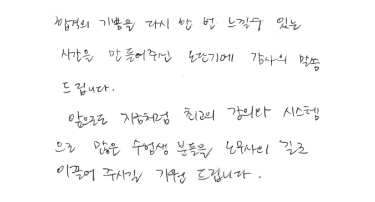 합격의 기쁨을 다시 한 번 느낄 수 있는
시간을 만들어주신 노단기에 감사의 말씀
드립니다.
앞으로도 지금처럼 최고의 강의와 시스템
으로 많은 수험생 분들을 노무사의 길로
이끌어 주시길 기원 드립니다.